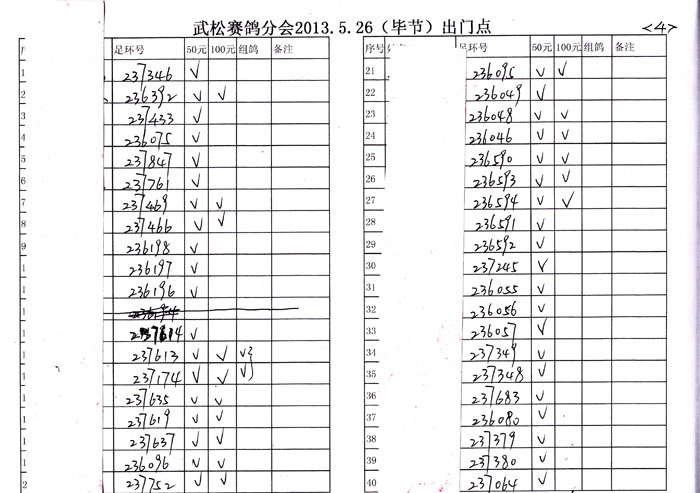 武松赛鸽分会2013.5.26（毕节）出门点 <4>
足环号 50元 100元 组鸽 备注
1 237346 √
2 236392 √ √
3 237433 √
4 236075 √
5 237847 √
6 237761 √
7 237469 √ √
8 237466 √ √
9 236198 √
1 236197 √
1 236196 √
1
1 √
1 237613 √ √ √
1 237174 √ √ √
1 237635 √ √
1 237619 √ √
1 237637 √ √
1 236096 √ √
2 237752 √ √
序号 足环号 50元 100元 组鸽 备注
21 236095 √ √
22 236049 √
23 236048 √ √
24 236046 √ √
25 236590 √ √
26 236593 √ √
27 236594 √ √
28 236591 √
29 236592 √
30 237245 √
31 236055 √
32 236056 √
33 236057 √
34 237349 √
35 237348 √
36 237683 √
37 236080 √
38 237379 √
39 237380 √
40 237064 √